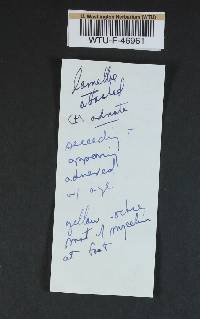 U. Washington Herbarium (WTU)
WTU-F-46961
Lamellae
attached
(±) adnate
seceding -
appearing
adnexed
w/ age
yellow-ochre
mat of mycelium
at foot